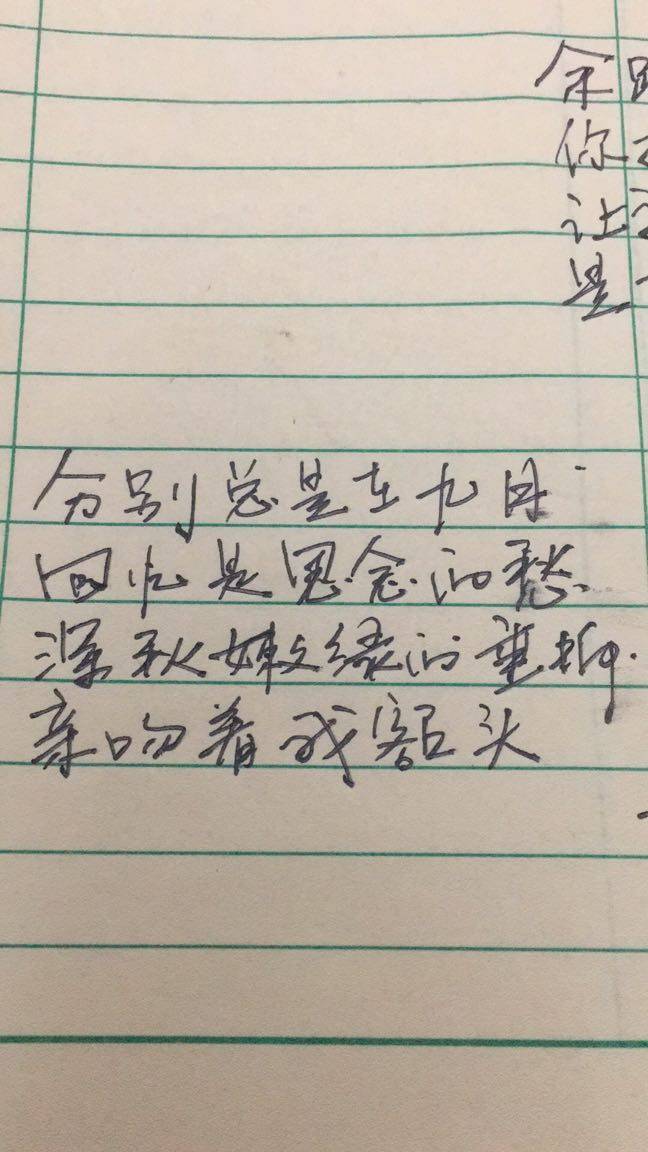 余
你
让
是
分别总是在九月
回忆是思念的愁
深秋嫩绿的垂柳
亲吻着我额头